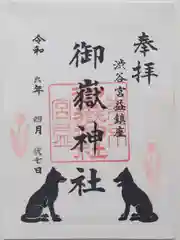 奉拝
渋谷宮益鎮座
御嶽神社
令和
年
四月
七日